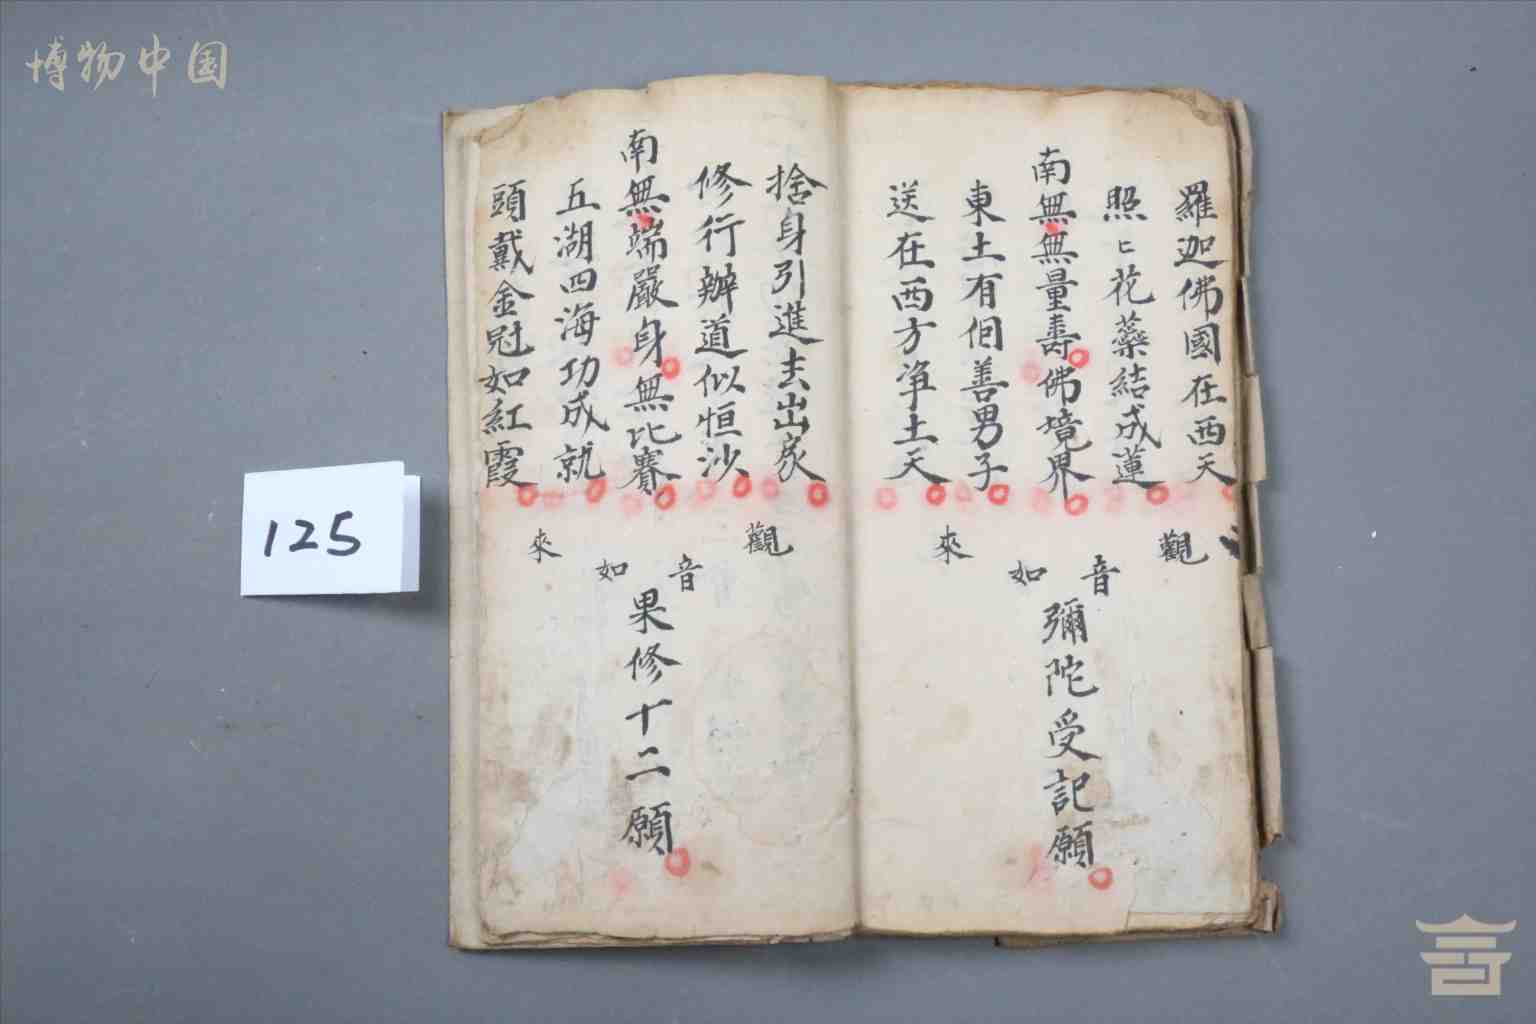 博物中国
羅迦佛國在西天
照〻花藥結成蓮
南無無量壽佛境界
東土有個善男子
送在西方淨土天
觀音如來
彌陀受記願
捨身引進去出家
修行辦道似恒沙
南無端嚴身無比賽
五湖四海功成就
頭戴金冠如紅霞
觀音如來
果修十二願
125